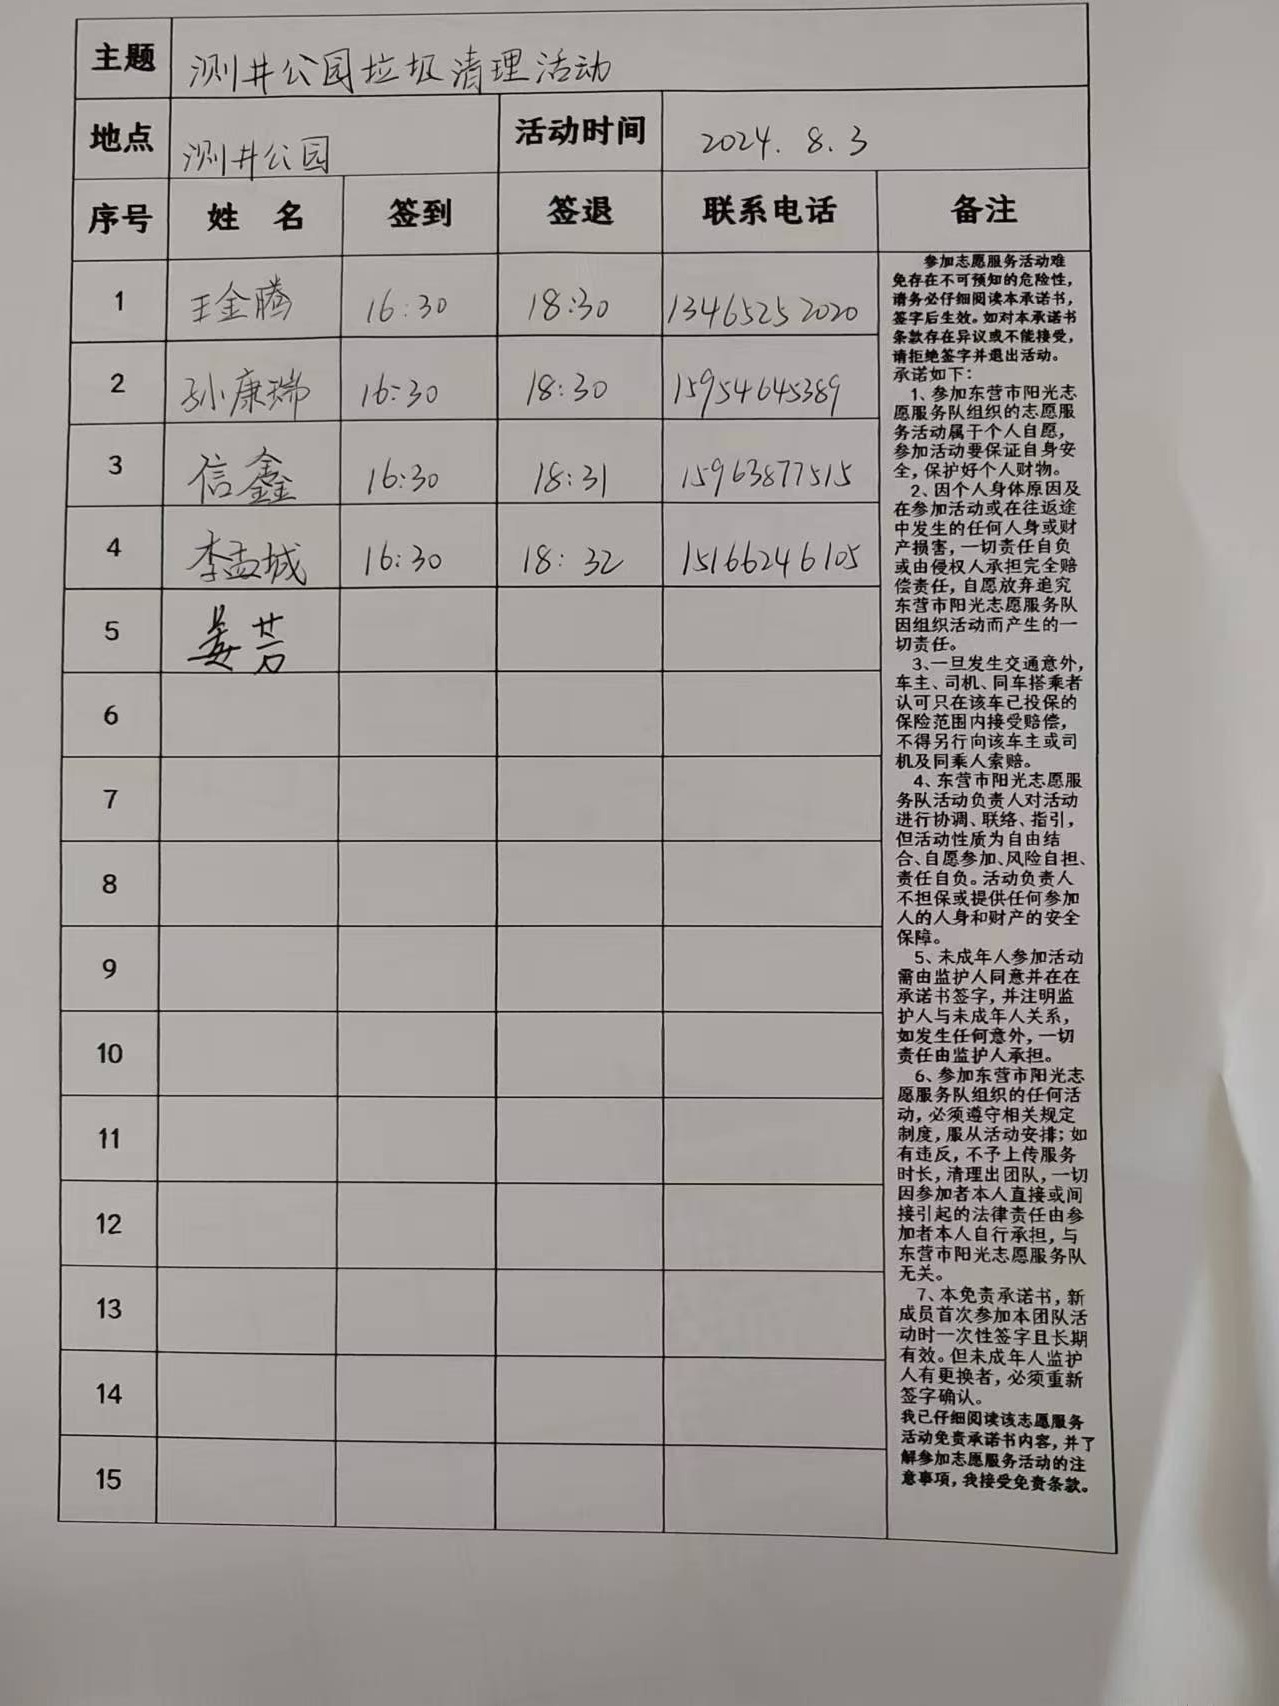 主题 测井公园垃圾清理活动
地点 测井公园 活动时间 2024. 8. 3
序号 姓 名 签到 签退 联系电话 备注
1 王金腾 16:30 18:30 13465252020
2 孙康瑞 16:30 18:30 15954645389
3 信鑫 16:30 18:31 15963877515
4 李孟城 16:30 18: 32 15166246105
5 姜芳
6
7
8
9
10
11
12
13
14
15
参加志愿服务活动难
免存在不可预知的危险性，
请务必仔细阅读本承诺书，
签字后生效。如对本承诺书
条款存在异议或不能接受，
请拒绝签字并退出活动。
承诺如下：
1、参加东营市阳光志
愿服务队组织的志愿服
务活动属于个人自愿，
参加活动要保证自身安
全，保护好个人财物。
2、因个人身体原因及
在参加活动或在往返途
中发生的任何人身或财
产损害，一切责任自负
或由侵权人承担完全赔
偿责任，自愿放弃追究
东营市阳光志愿服务队
因组织活动而产生的一
切责任。
3、一旦发生交通意外，
车主、司机、同车搭乘者
认可只在该车已投保的
保险范围内接受赔偿，
不得另行向该车主或司
机及同乘人索赔。
4、东营市阳光志愿服
务队活动负责人对活动
进行协调、联络、指引，
但活动性质为自由结
合、自愿参加、风险自担、
责任自负。活动负责人
不担保或提供任何参加
人的人身和财产的安全
保障。
5、未成年人参加活动
需由监护人同意并在在
承诺书签字，并注明监
护人与未成年人关系，
如发生任何意外，一切
责任由监护人承担。
6、参加东营市阳光志
愿服务队组织的任何活
动，必须遵守相关规定
制度，服从活动安排；如
有违反，不予上传服务
时长，清理出团队，一切
因参加者本人直接或间
接引起的法律责任由参
加者本人自行承担，与
东营市阳光志愿服务队
无关。
7、本免责承诺书，新
成员首次参加本团队活
动时一次性签字且长期
有效。但未成年人监护
人有更换者，必须重新
签字确认。
我已仔细阅读该志愿服务
活动免责承诺书内容，并了
解参加志愿服务活动的注
意事项，我接受免责条款。